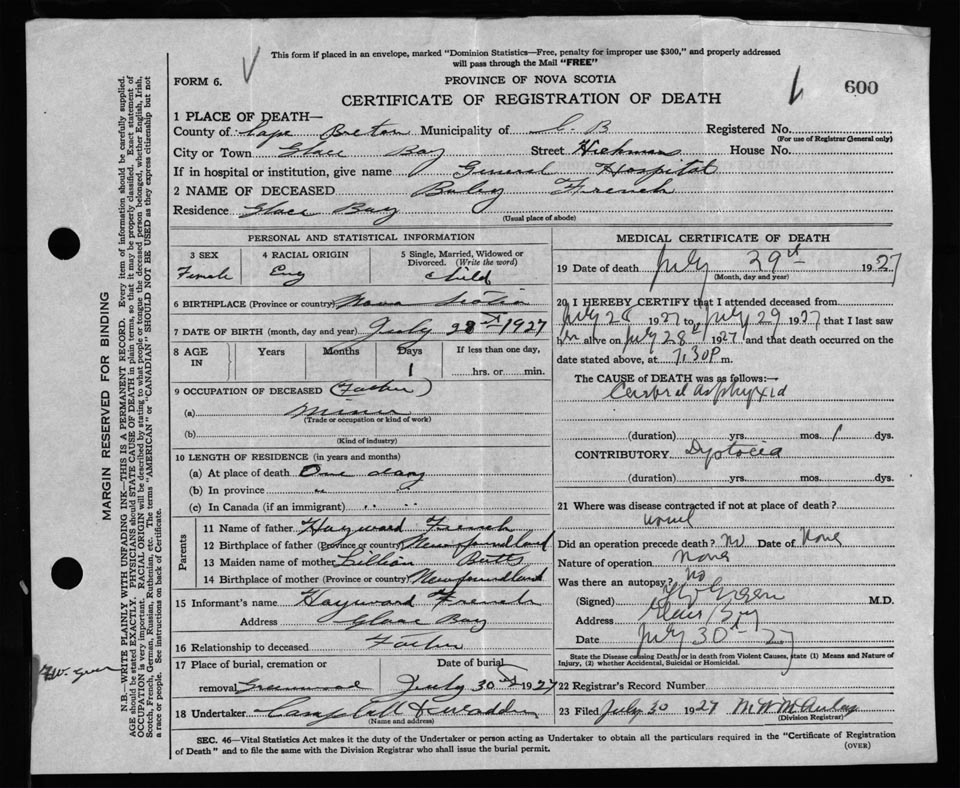 This form if placed in an envelope, marked "Dominion Statistics—Free, penalty for improper use $300," and properly addressed
will pass through the Mail "FREE"
FORM 6.
PROVINCE OF NOVA SCOTIA
600
CERTIFICATE OF REGISTRATION OF DEATH
1 PLACE OF DEATH—
County of Cape Breton Municipality of C. B Registered No.
(For use of Registrar General only)
City or Town Glace Bay Street House No.
If in hospital or institution, give name General Hospital
2 NAME OF DECEASED Baby French
Residence Glace Bay
(Usual place of abode)
PERSONAL AND STATISTICAL INFORMATION
3 SEX
Female
4 RACIAL ORIGIN
Eng
5 Single, Married, Widowed or
Divorced. (Write the word)
Child
6 BIRTHPLACE (Province or country) Nova Scotia
7 DATE OF BIRTH (month, day and year) July 28 1927
8 AGE
IN
Years
Months
Days
1
If less than one day,
hrs. or min.
9 OCCUPATION OF DECEASED (Father)
(a) Miner
(Trade or occupation or kind of work)
(b)
(Kind of industry)
10 LENGTH OF RESIDENCE (in years and months)
(a) At place of death One day
(b) In province "
(c) In Canada (if an immigrant) " "
Parents
11 Name of father Hayward French
12 Birthplace of father (Province or country) Newfoundland
13 Maiden name of mother Lillian Butts
14 Birthplace of mother (Province or country) Newfoundland
15 Informant's name Hayward French
Address Glace Bay
16 Relationship to deceased Father
17 Place of burial, cremation or
removal Greenwood
Date of burial
July 30 1927
18 Undertaker Campbell
(Name and address)
MEDICAL CERTIFICATE OF DEATH
19 Date of death July 29th 1927
(Month, day and year)
20 I HEREBY CERTIFY that I attended deceased from
July 28 1927 to July 29 1927 that I last saw
h alive on July 28 1927 and that death occurred on the
date stated above, at 7.30 P m.
The CAUSE of DEATH was as follows:—
Cerebral asphyxia
(duration) yrs. mos. 1 dys.
CONTRIBUTORY Dystocia
(duration) yrs. mos. dys.
21 Where was disease contracted if not at place of death?
Did an operation precede death? No Date of None
Nature of operation None
Was there an autopsy? no
(Signed) M.D.
Address Glace Bay
Date July 30 - 27
State the Disease causing Death, or in death from Violent Causes, state (1) Means and Nature of
Injury, (2) whether Accidental, Suicidal or Homicidal.
22 Registrar's Record Number
23 Filed July 30 1927
(Division Registrar)
SEC. 46—Vital Statistics Act makes it the duty of the Undertaker or person acting as Undertaker to obtain all the particulars required in the "Certificate of Registration
of Death" and to file the same with the Division Registrar who shall issue the burial permit.
(OVER)
MARGIN RESERVED FOR BINDING
N.B.—WRITE PLAINLY WITH UNFADING INK—THIS IS A PERMANENT RECORD. Every item of information should be carefully supplied.
AGE should be stated EXACTLY. PHYSICIANS should STATE CAUSE OF DEATH in plain terms, so that it may be properly classified. Exact statement of
OCCUPATION is very important. RACIAL ORIGIN will be described by stating to what people or tongue the deceased person belonged, whether English, Irish,
Scotch, French, German, Russian, Ruthenian, etc. The terms "AMERICAN" or "CANADIAN" SHOULD NOT BE USED as they express citizenship but not
a race or people. See instructions on back of Certificate.